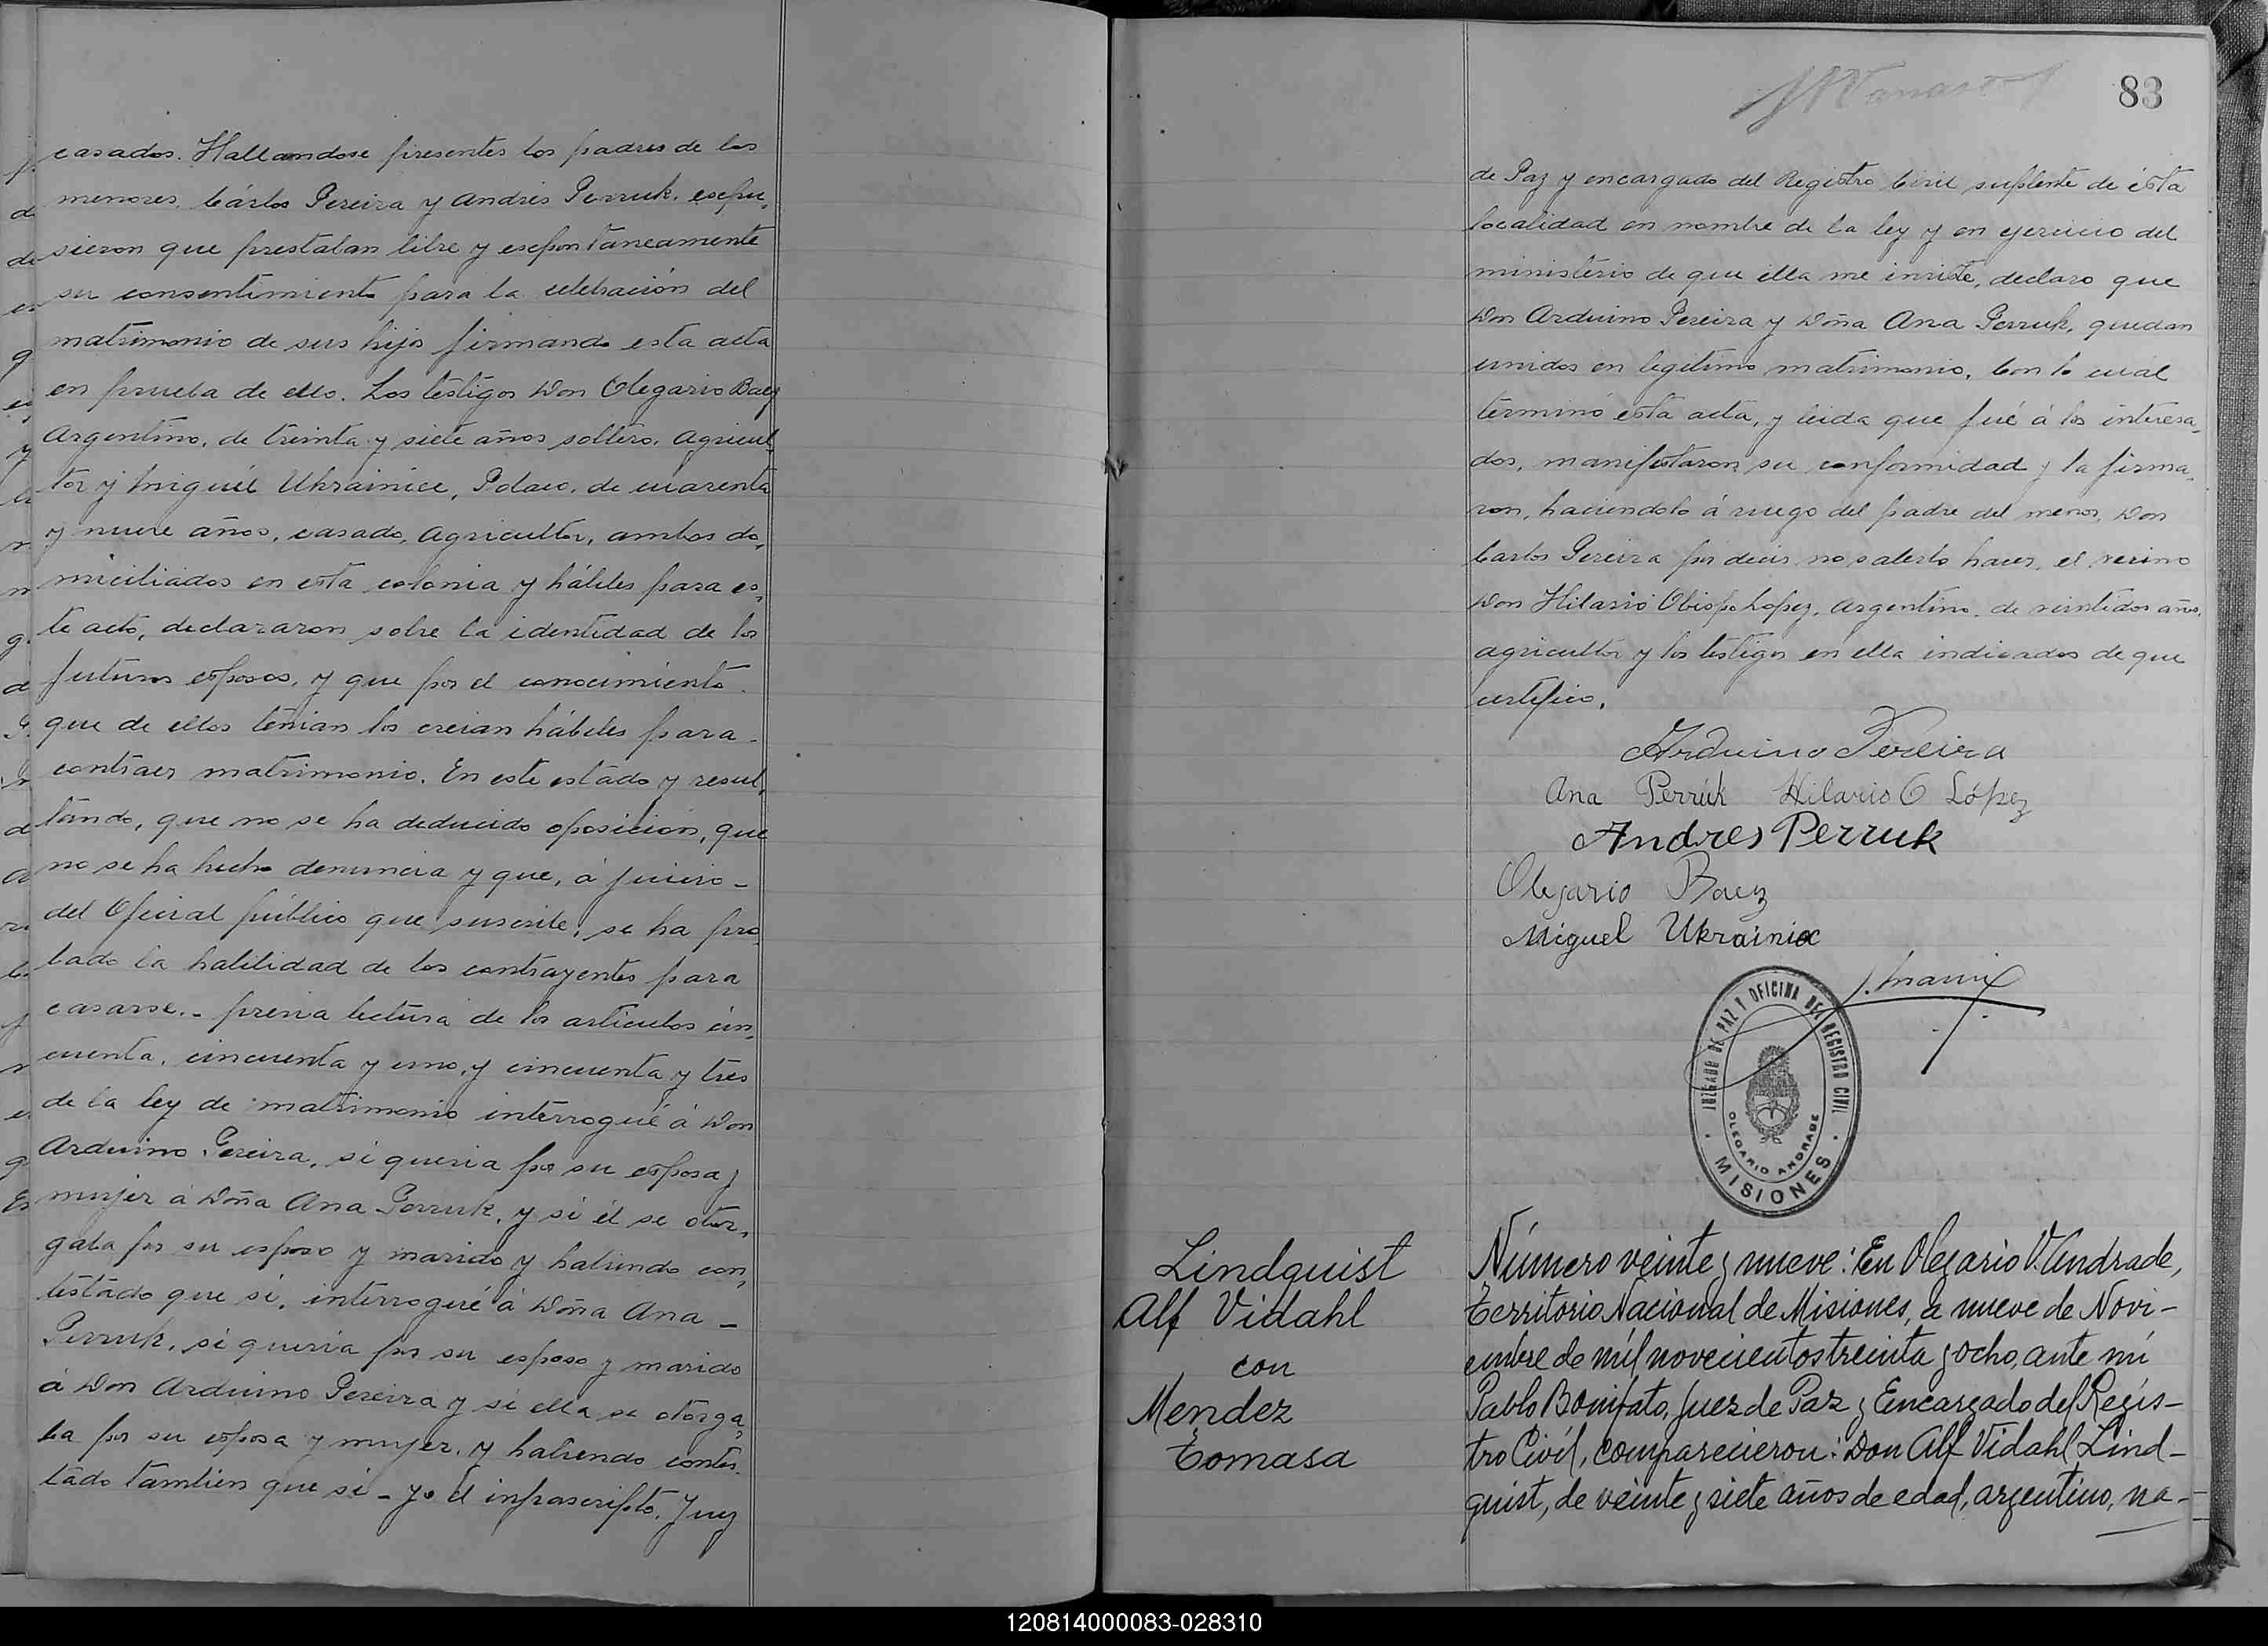 casados. Hallandose presentes los padres de los
menores, Cárlos Pereira y Andrés Perruk, espu,
sieron que prestaban libre y espontaneamente
su consentimiento para la celebración del
matrimonio de sus hijos firmando esta acta
en prueba de ello. Los testigos Don Olegario Baez
Argentino, de treinta y siete años soltero, agricul,
tor y Miguél Ukrainiec, Polaco, de cuarenta
y nueve años, casado, agricultor, ambos do,
miciliados en esta colonia y hábiles para es,
te acto, declararon sobre la identidad de los
futuros esposos, y que por el conocimiento
que de ellos tenian los creian hábiles para
contraer matrimonio. En este estado y resul,
tando, que no se ha deducido oposición, que
no se ha hecho denuncia y que, á juicio -
del Oficial público que suscribe, se ha pro
bado la habilidad de los contrayentes para
casarse.- previa lectura de los artículos cin,
cuenta, cincuenta y uno, y cincuenta y tres
de la ley de matrimonio interrogué á Don
Arduino Pereira, si queria por su esposa y
mujer á Doña Ana Perruk, y si él se otor,
gaba por su esposo y marido y habiendo con,
testado que si, interrogué á Doña Ana -
Perruk, si queria por su esposo y marido
á Don Arduino Pereira y si ella se otorga,
ba por su esposa y mujer, y habiendo contes,
tado tambien que si - yo él infrascripto, Juez
83
de Paz y encargado del Registro Civil suplente de ésta
localidad en nombre de la ley y en ejercicio del
ministerio de que ella me inviste, declaro que
Don Arduino Pereira y Doña Ana Perruk, quedan
unidos en legitimo matrimonio, Con lo cuál
terminó esta acta, y leida que fué á los interesa,
dos, manifestaron su conformidad y la firma,
ron, haciendolo á ruego del padre del menor, Don
Carlos Pereira por decir no saberlo hacer, el vecino
Don Hilario Obispo Lopez, Argentino, de veintidos años,
agricultor y los testigos en ella indicados de que
certifico.
Arduino Pereira
Ana Perrúk Hilario O López
Andres Perruk
Olegario Baez
Miguel Ukrainiec
JUZGADO DE PAZ Y OFICINA DEL REGISTRO CIVIL
OLEGARIO ANDRADE
· MISIONES ·
Lindquist
Alf Vidahl
con
Mendez
Tomasa
Número veinte y nueve: En Olegario V. Andrade,
Territorio Nacional de Misiones, a nueve de Novi-
embre de míl novecientos treinta y ocho, ante mí
Pablo Bonifato, Juez de Paz y Encargado del Regis-
tro Civíl, comparecieron: Don Alf Vidahl Lind-
quist, de veinte y siete años de edad, argentino, na-
120814000083-028310